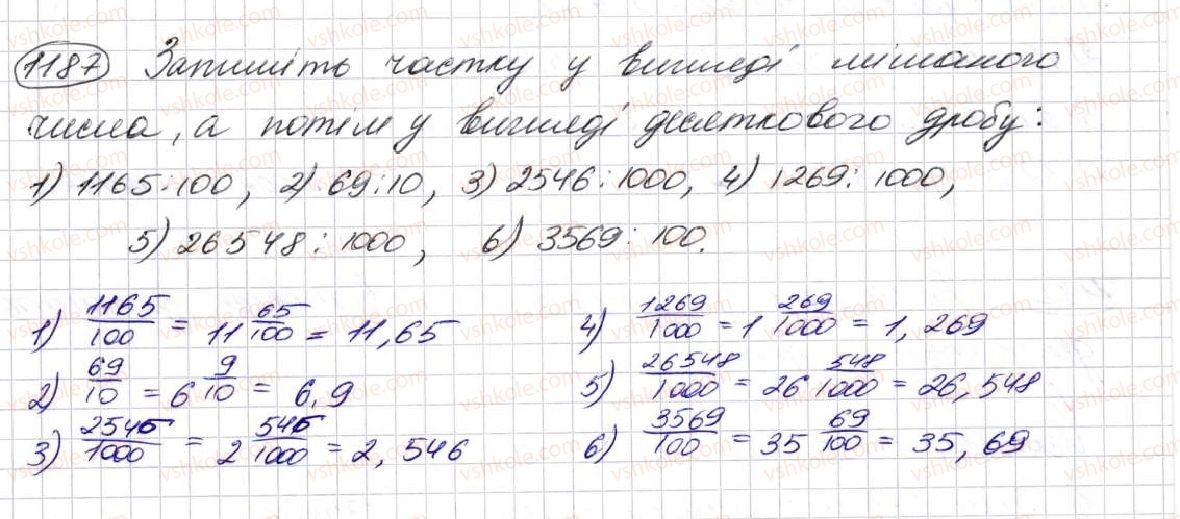 1187 Запишіть частку у вигляді мішаного
числа, а потім у вигляді десяткового дробу:
1) 1165:100, 2) 69:10, 3) 2546:1000, 4) 1269:1000,
5) 26548:1000, 6) 3569:100.
1) 1165/100 = 11 65/100 = 11,65
2) 69/10 = 6 9/10 = 6,9
3) 2546/1000 = 2 546/1000 = 2,546
4) 1269/1000 = 1 269/1000 = 1,269
5) 26548/1000 = 26 548/1000 = 26,548
6) 3569/100 = 35 69/100 = 35,69
vshkole.com